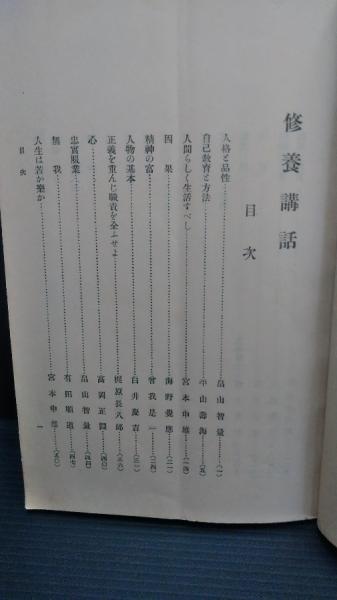 修養講話
目次
人格と品性……畠山智量…(一)
自己教育と方法……中山壽海…(五)
人間らしく生活すべし……宮本申雄…(一四)
因果……海野覺應…(二一)
精神の富……曾我是一…(二四)
人物の基本……白井慶吉…(三一)
正義を重んじ職責を全ふせよ……梶原長八郎…(三六)
心……高岡正圓…(四〇)
忠實服業……畠山智量…(四四)
無我……有田順道…(四七)
人生は苦か樂か……宮本申雄…(五〇)
目次
一